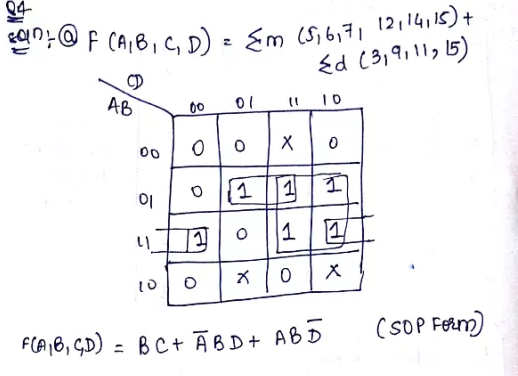 Q4
soln:- (a) F (A,B,C,D) = Σm (5,6,7, 12,14,15) +
Σd (3,9,11,15)
CD
AB 00 01 11 10
00 0 0 X 0
01 0 1 1 1
11 1 0 1 1
10 0 X 0 X
F(A,B,C,D) = BC + A̅BD + ABD̅ (SOP Form)